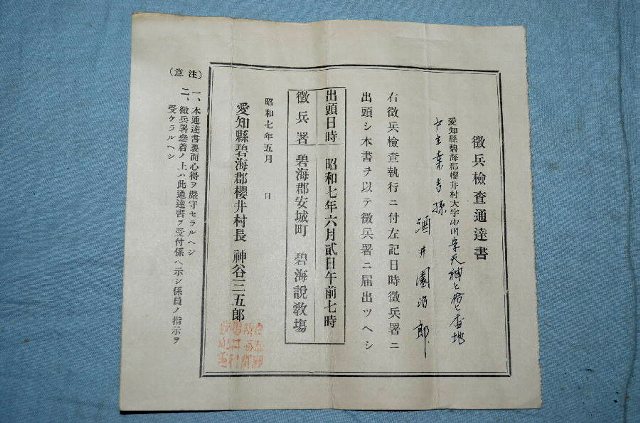 徴兵檢査通達書
愛知縣碧海郡櫻井村大字小川字天神
酒井園治郎
右徴兵檢査執行ニ付左記日時徴兵署ニ
出頭シ本書ヲ以テ徴兵署ニ届出ツヘシ
出頭日時 昭和七年六月貳日午前七時
徴兵署 碧海郡安城町 碧海説教場
昭和七年五月 日
愛知縣碧海郡櫻井村長 神谷三五郎
(注意)
一、本通達書裏面心得ヲ嚴守セラルヘシ
二、徴兵署參着ノ上ハ此通達書ヲ受付係ヘ示シ係員ノ指示ヲ
受ケラルヘシ